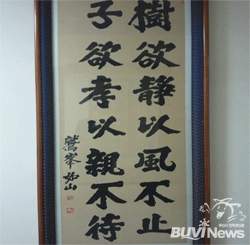 樹欲靜以風不止
子欲孝以親不待
鷲峯 山
BUVINews